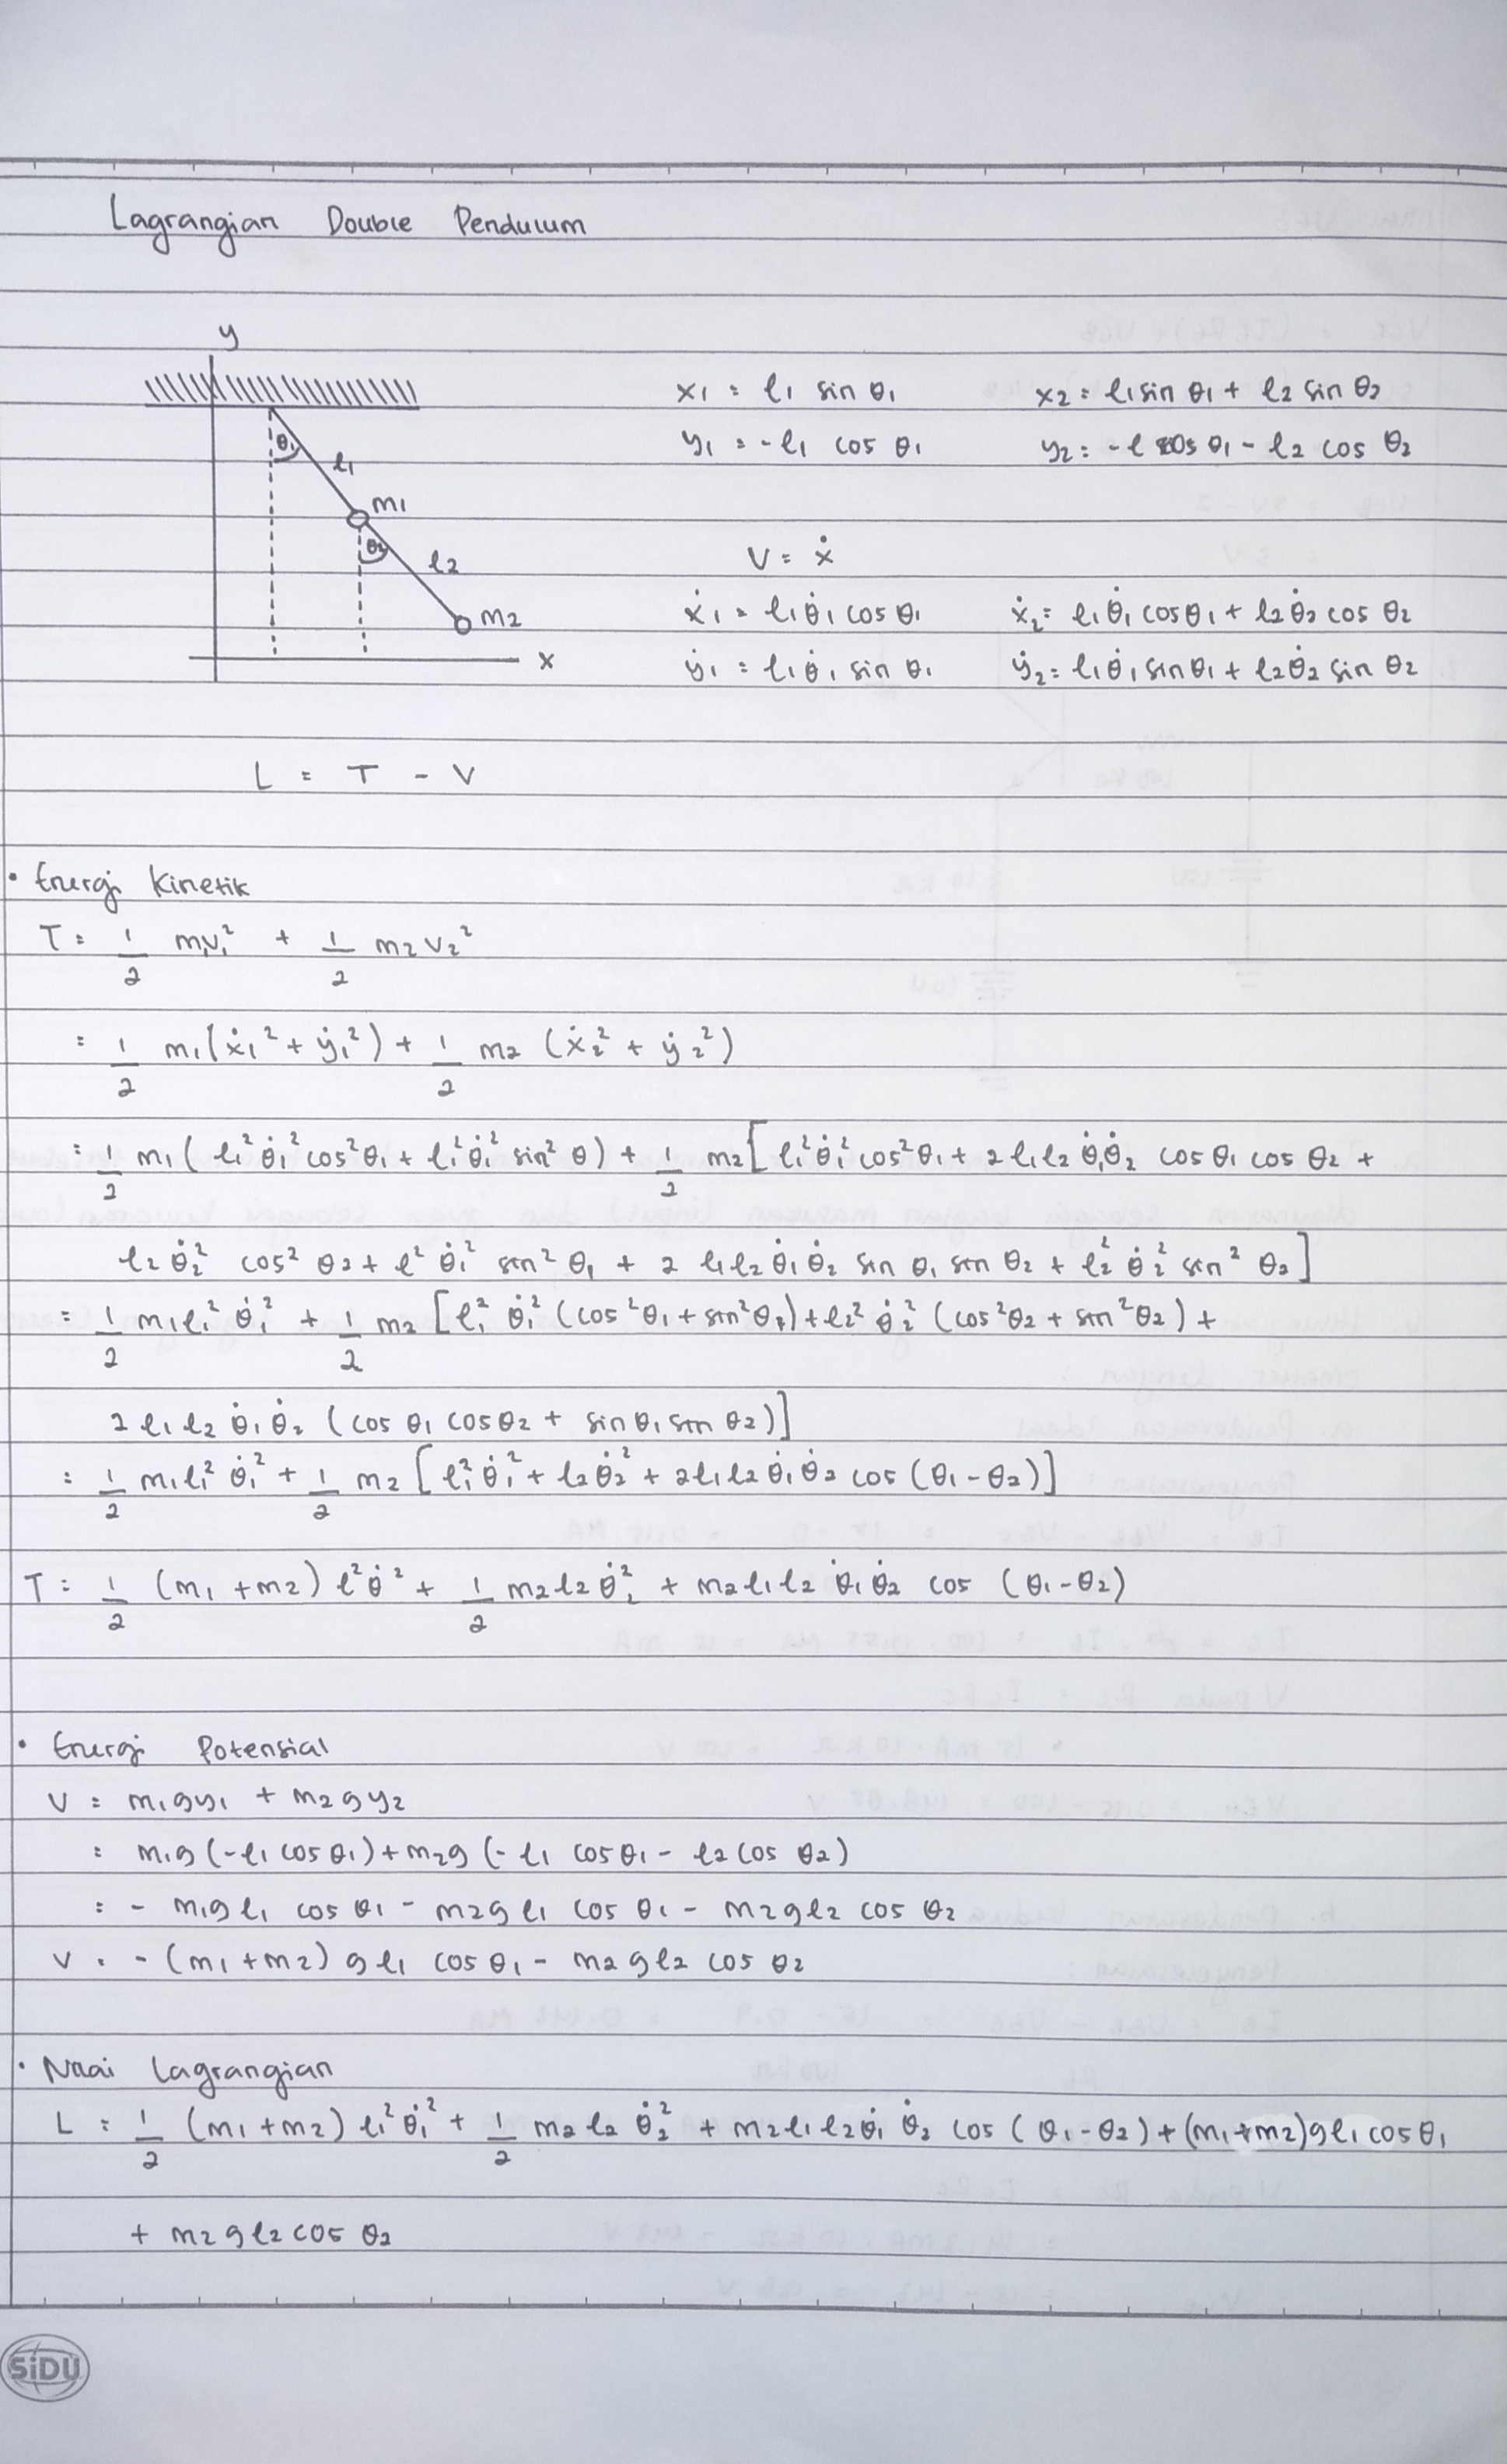 Lagrangian Double Pendulum
y
x₁ = l₁ sin θ₁ x₂ = l₁ sin θ₁ + l₂ sin θ₂
θ₁ l₁ y₁ = -l₁ cos θ₁ y₂ = -l cos θ₁ - l₂ cos θ₂
m₁
θ₂ l₂ V = ẋ
m₂ ẋ₁ = l₁θ̇₁ cos θ₁ ẋ₂ = l₁θ̇₁ cos θ₁ + l₂θ̇₂ cos θ₂
x ẏ₁ = l₁θ̇₁ sin θ₁ ẏ₂ = l₁θ̇₁ sin θ₁ + l₂θ̇₂ sin θ₂
L = T - V
• Energi Kinetik
T = 1/2 m₁v₁² + 1/2 m₂v₂²
= 1/2 m₁(ẋ₁² + ẏ₁²) + 1/2 m₂ (ẋ₂² + ẏ₂²)
= 1/2 m₁ (l₁² θ̇₁² cos²θ₁ + l₁² θ̇₁² sin² θ) + 1/2 m₂ [l₁² θ̇₁² cos²θ₁ + 2 l₁l₂ θ̇₁θ̇₂ cos θ₁ cos θ₂ +
l₂ θ̇₂² cos² θ₂ + l² θ̇₁² sin² θ₁ + 2 l₁l₂ θ̇₁ θ̇₂ sin θ₁ sin θ₂ + l₂² θ̇₂² sin² θ₂]
= 1/2 m₁l₁² θ̇₁² + 1/2 m₂ [l₁² θ̇₁² (cos²θ₁ + sin²θ₁) + l₂² θ̇₂² (cos²θ₂ + sin²θ₂) +
2 l₁ l₂ θ̇₁ θ̇₂ (cos θ₁ cos θ₂ + sin θ₁ sin θ₂)]
= 1/2 m₁l₁² θ̇₁² + 1/2 m₂ [l₁² θ̇₁² + l₂ θ̇₂² + 2l₁l₂ θ̇₁ θ̇₂ cos (θ₁ - θ₂)]
T = 1/2 (m₁ + m₂) l² θ̇² + 1/2 m₂ l₂ θ̇₂² + m₂ l₁ l₂ θ̇₁ θ̇₂ cos (θ₁ - θ₂)
• Energi Potensial
V = m₁gy₁ + m₂gy₂
= m₁g (-l₁ cos θ₁) + m₂g (- l₁ cos θ₁ - l₂ cos θ₂)
= - m₁g l₁ cos θ₁ - m₂g l₁ cos θ₁ - m₂gl₂ cos θ₂
V = - (m₁ + m₂) g l₁ cos θ₁ - m₂ g l₂ cos θ₂
• Nilai Lagrangian
L = 1/2 (m₁ + m₂) l₁² θ̇₁² + 1/2 m₂ l₂ θ̇₂² + m₂ l₁ l₂ θ̇₁ θ̇₂ cos (θ₁ - θ₂) + (m₁ + m₂) g l₁ cos θ₁
+ m₂ g l₂ cos θ₂
SiDU